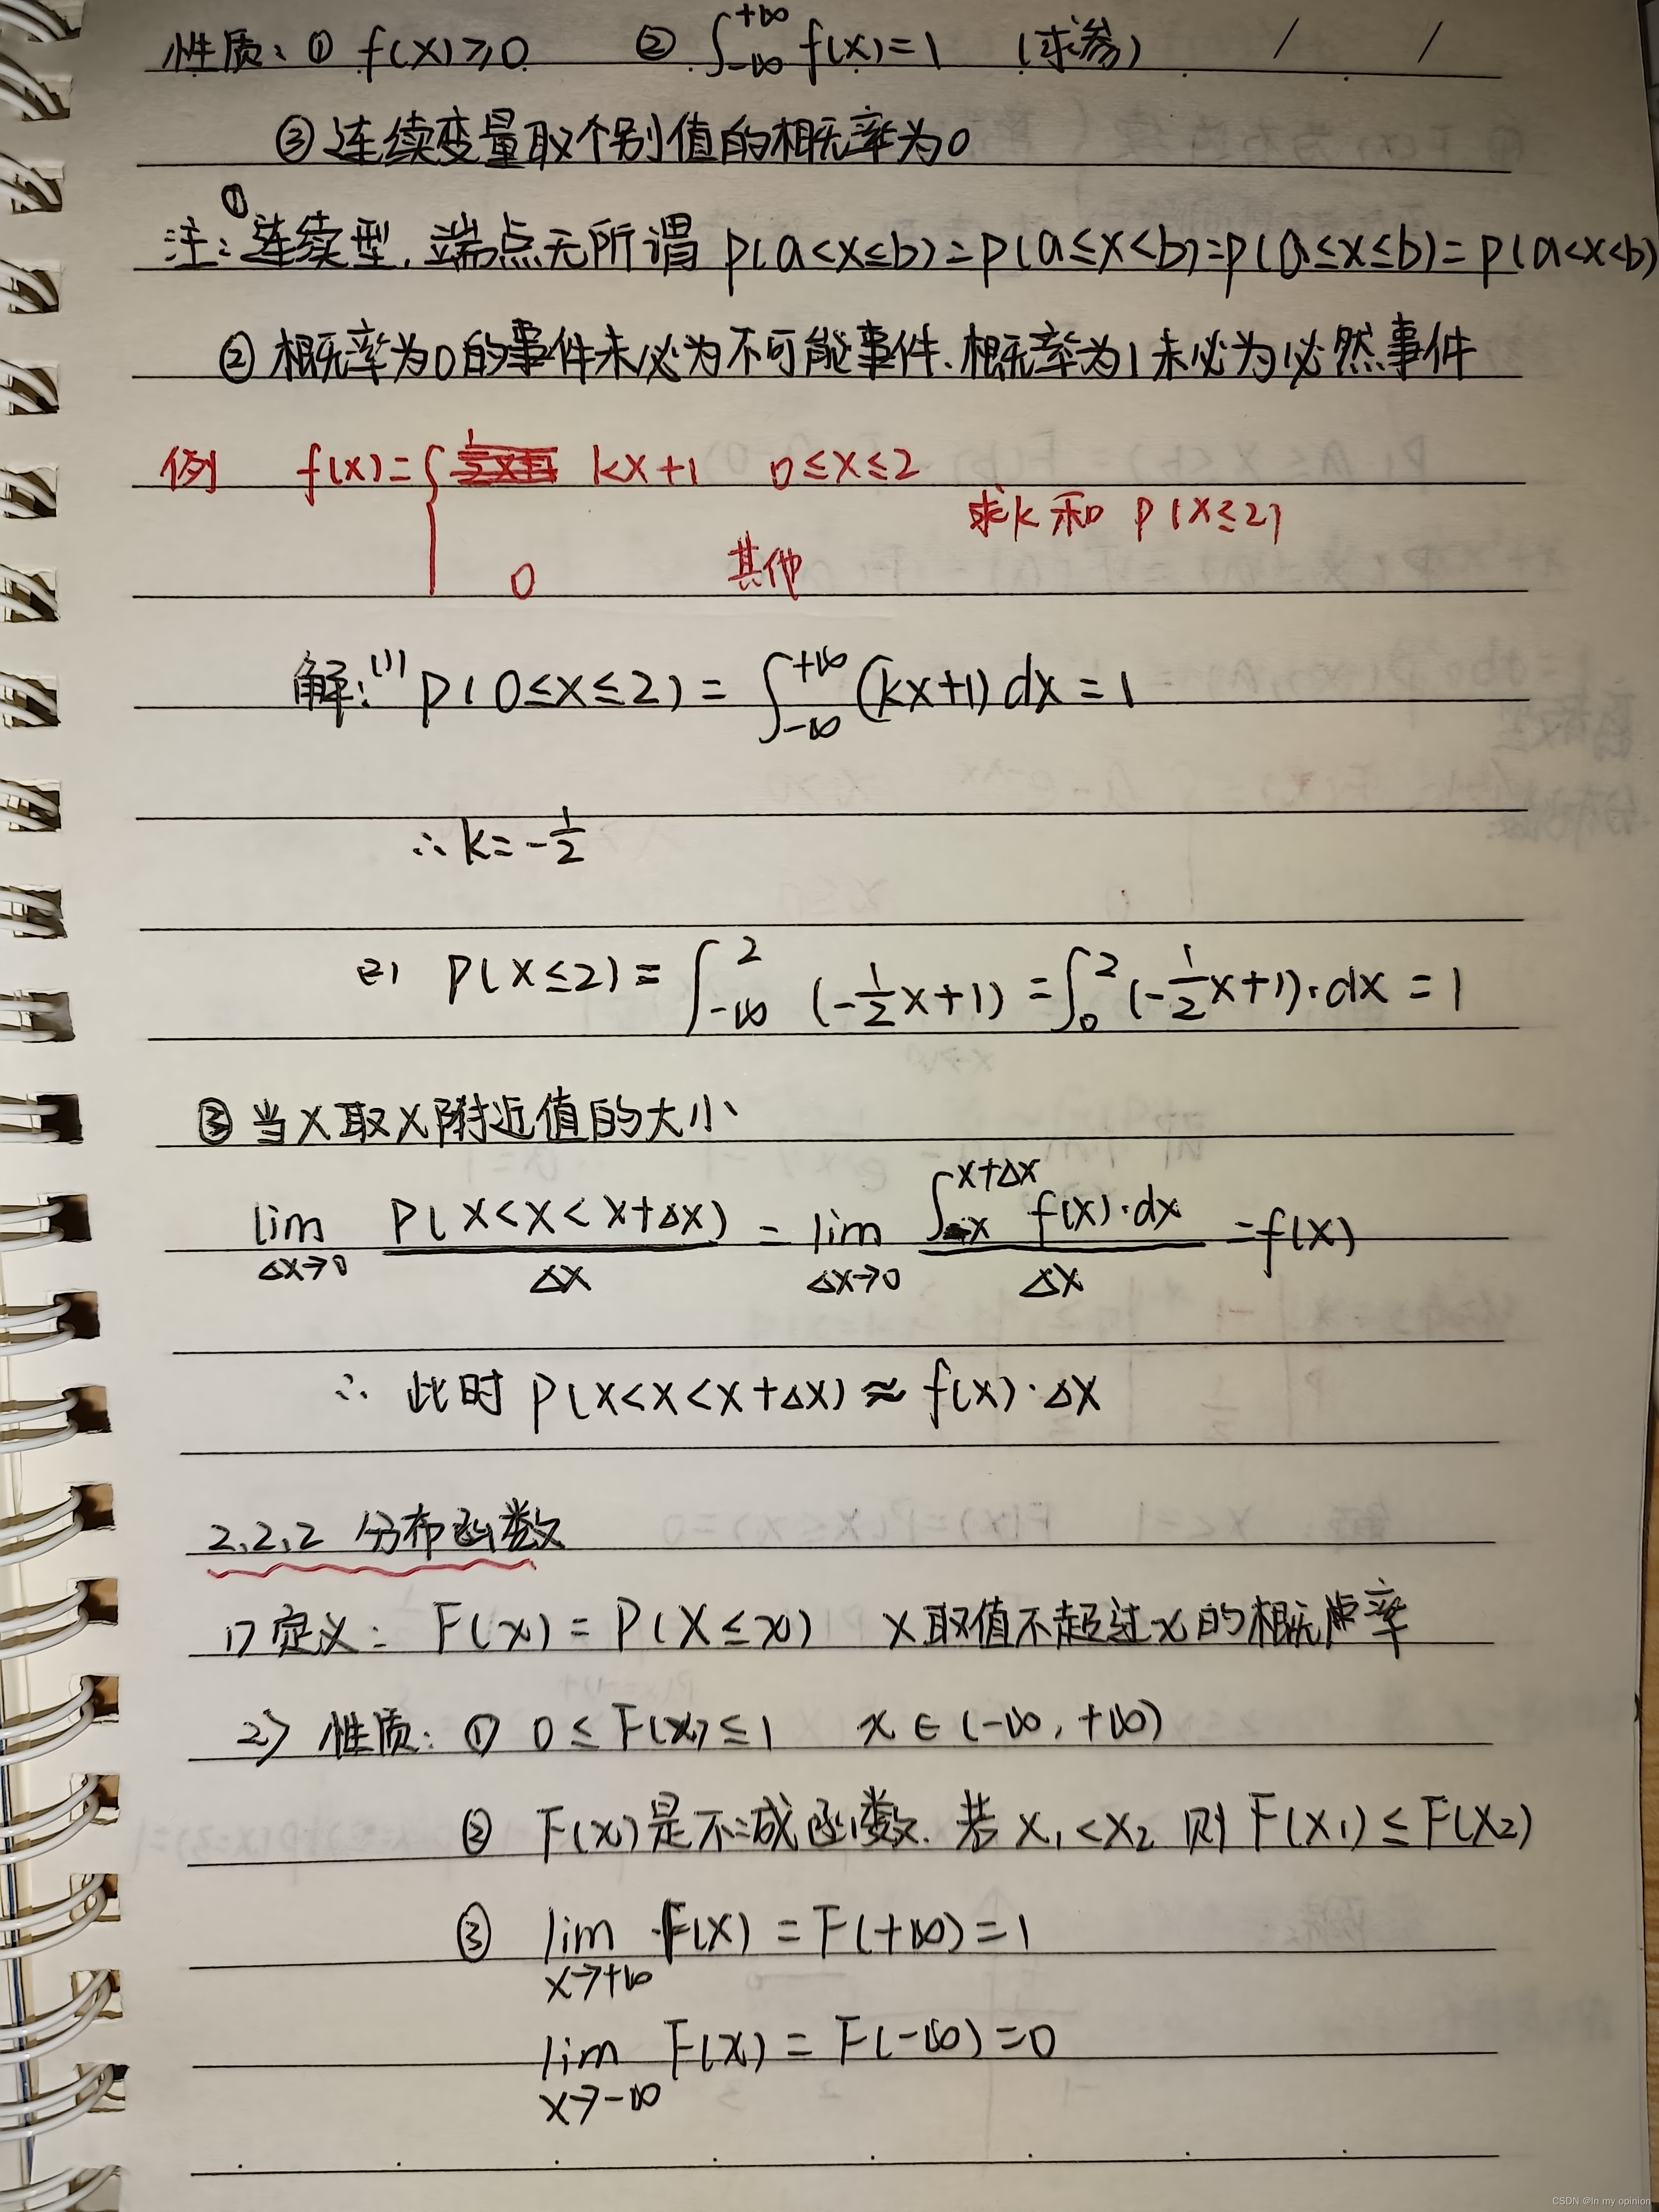 性质：① f(x)≥0  ② ∫_{-∞}^{+∞} f(x)=1 （求参）
③连续变量取个别值的概率为0
注：①连续型，端点无所谓 P(a<X≤b)=P(a≤X<b)=P(a≤X≤b)=P(a<X<b)
②概率为0的事件未必为不可能事件.概率为1未必为必然事件
例 f(x)={ kx+1  0≤x≤2
求k和 P(X≤2)
0  其他
解：(1) P(0≤x≤2)=∫_{-∞}^{+∞}(kx+1)dx=1
∴k=-1/2
(2) P(X≤2)=∫_{-∞}^{2}(-1/2x+1)=∫_{0}^{2}(-1/2x+1)·dx=1
③当X取x附近值的大小
lim_{Δx→0} P(x<X<x+Δx)/Δx = lim_{Δx→0} ∫_{x}^{x+Δx} f(x)·dx/Δx =f(x)
∴ 此时 P(x<X<x+Δx)≈f(x)·Δx
2.2.2 分布函数
1) 定义：F(x)=P(X≤x)  X取值不超过x的概率
2) 性质：① 0≤F(x)≤1  x∈(-∞,+∞)
② F(x)是不减函数.若x₁<x₂ 则F(x₁)≤F(x₂)
③ lim_{x→+∞} F(x)=F(+∞)=1
lim_{x→-∞} F(x)=F(-∞)=0
CSDN @In my opinion